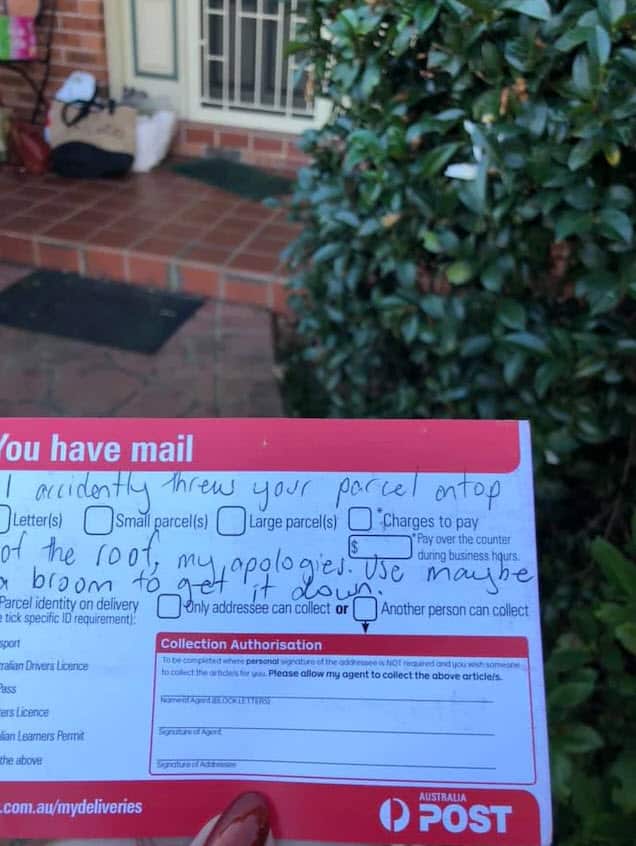 You have mail
I accidently threw your parcel ontop
Letter(s) Small parcel(s) Large parcel(s) *Charges to pay
of the roof, my apologies. Use maybe
$ *Pay over the counter
during business hours.
a broom to get it down.
Parcel identity on delivery
tick specific ID requirement): Only addressee can collect or Another person can collect
sport
ralian Drivers Licence
Pass
ers Licence
lian Learners Permit
the above
Collection Authorisation
To be completed where personal signature of the addressee is NOT required and you wish someone
to collect the article/s for you. Please allow my agent to collect the above article/s.
Name of Agent (BLOCK LETTERS)
Signature of Agent
Signature of Addressee
.com.au/mydeliveries
AUSTRALIA
POST